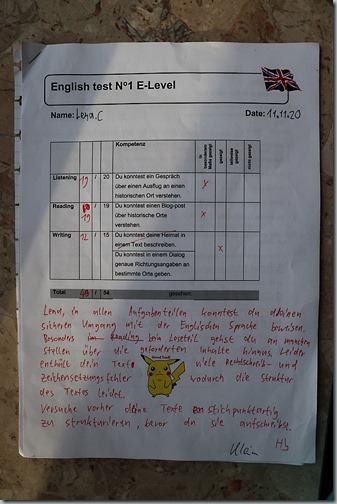 English test N°1 E-Level
Name: Lena.C Date: 11.11.20
Kompetenz in besonderem Maße gezeigt gezeigt teilweise gezeigt nicht gezeigt
Listening 19 / 20 Du konntest ein Gespräch
über einen Ausflug an einen
historischen Ort verstehen. x
Reading 19 / 19 Du konntest einen Blog-post
über historische Orte
verstehen. x
Writing 12 / 15 Du konntest deine Heimat in
einem Text beschreiben. x
Du konntest in einem Dialog
genaue Richtungsangaben an
bestimmte Orte geben.
Total / 54 gesehen:
Lena, in allen Aufgabenteilen konntest du deinen
sicheren Umgang mit der Englischen Sprache beweisen.
Besonders im Reading beim Leseteil gehst du an manchen
Stellen über die geforderten Inhalte hinaus. Leider
enthält dein Text viele Rechtschreib- und
Zeichensetzungsfehler wodurch die Struktur
des Textes leidet.
Versuche vorher deine Texte stichpunktartig
zu strukturieren, bevor du sie aufschreibst.